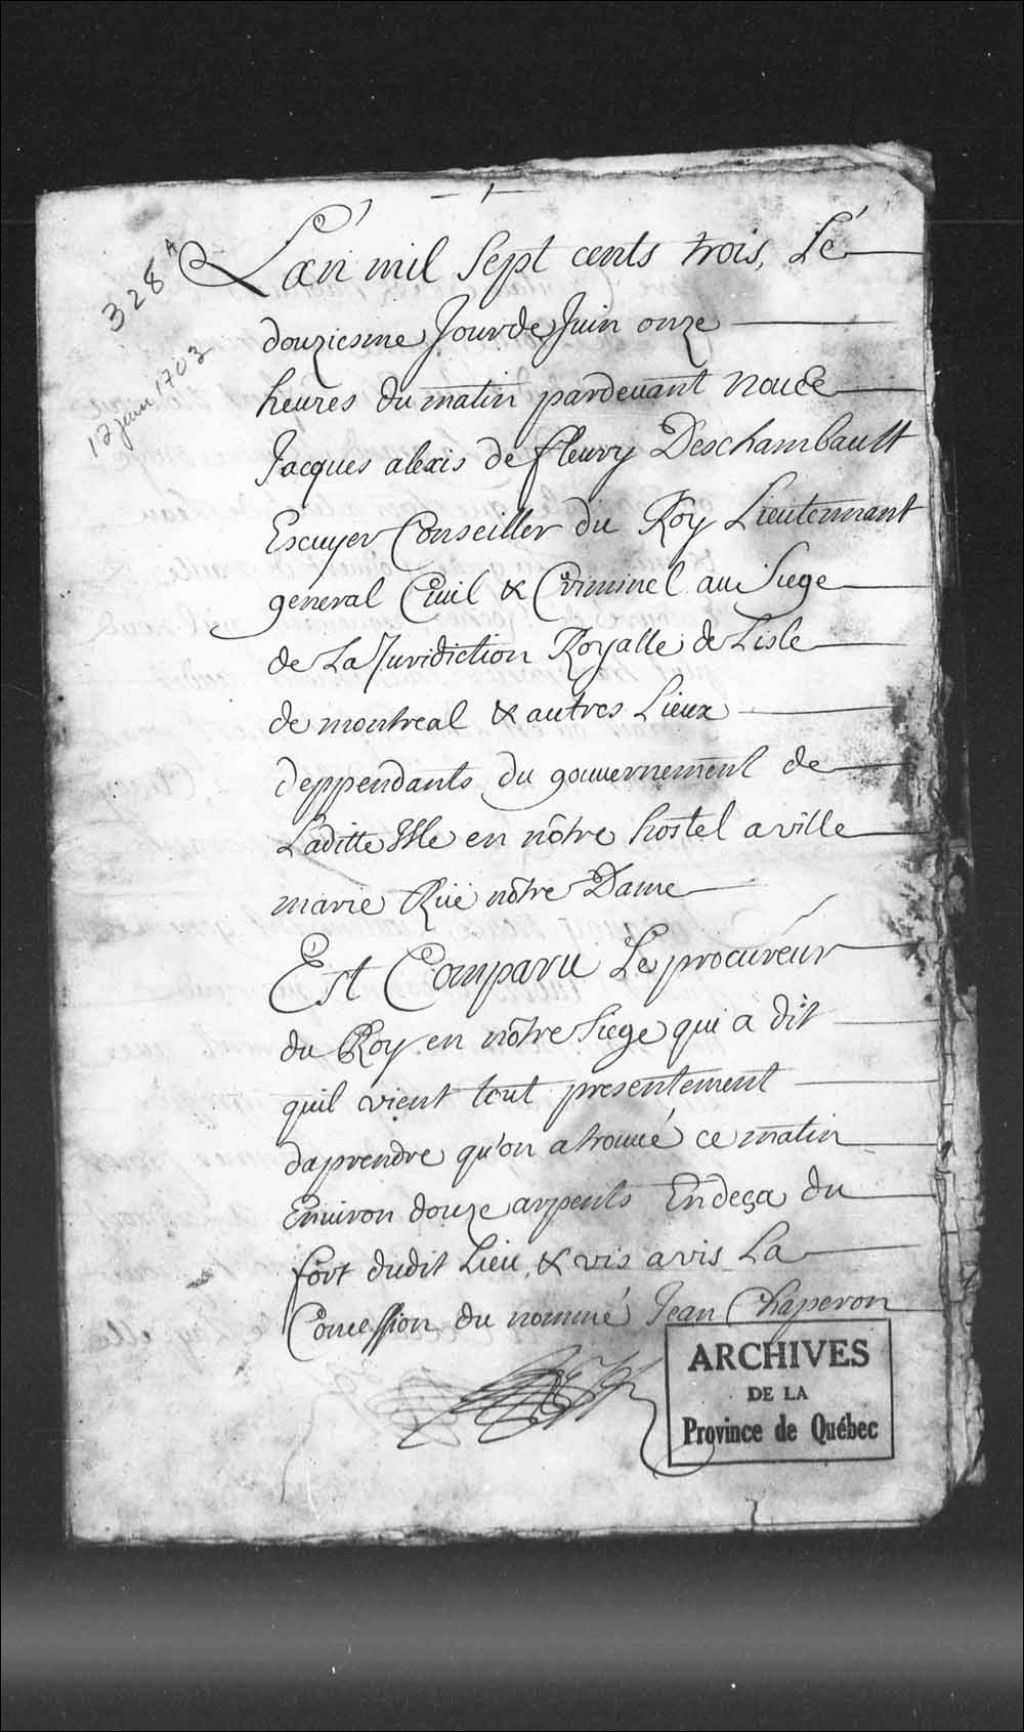 328 A
12 juin 1703
L'an mil Sept cents trois, Le
douziesme Jour de Juin onze
heures du matin pardevant Nous
Jacques alexis de fleury Deschambault
Escuyer Conseiller du Roy Lieutennant
general Civil & Criminel au Siege
de La Juridiction Royalle de Lisle
de montreal & autres Lieux
deppendants du gouvernement de
Laditte Isle en nôtre hostel a ville
marie Rüe nôtre Dame
Est Comparu Le procureur
du Roy en nôtre Siege qui a dit
quil vient tout presentement
daprendre qu'on a trouué ce matin
Enuiron douze arpents Endeça du
fort dudit Lieu, & vis a vis La
Concession du nommé Jean Chaperon
ARCHIVES
DE LA
Province de Québec